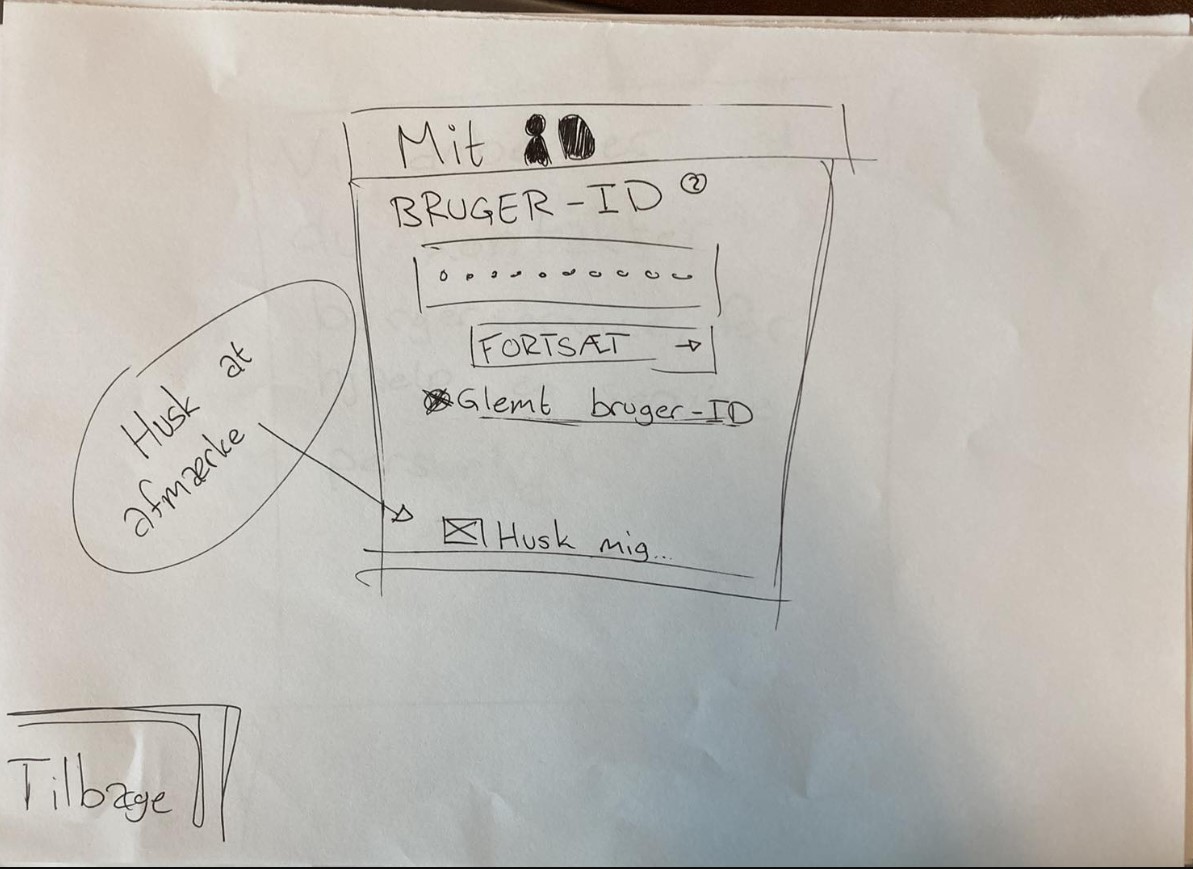 Mit ID
BRUGER-ID ?
FORTSÆT →
Glemt bruger-ID
Husk at
afmærke
Husk mig...
Tilbage